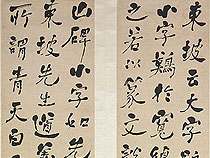 東坡云大字
小字難於寬綽
之若以篆文說
山碑小字
東坡先生道
所謂青天白